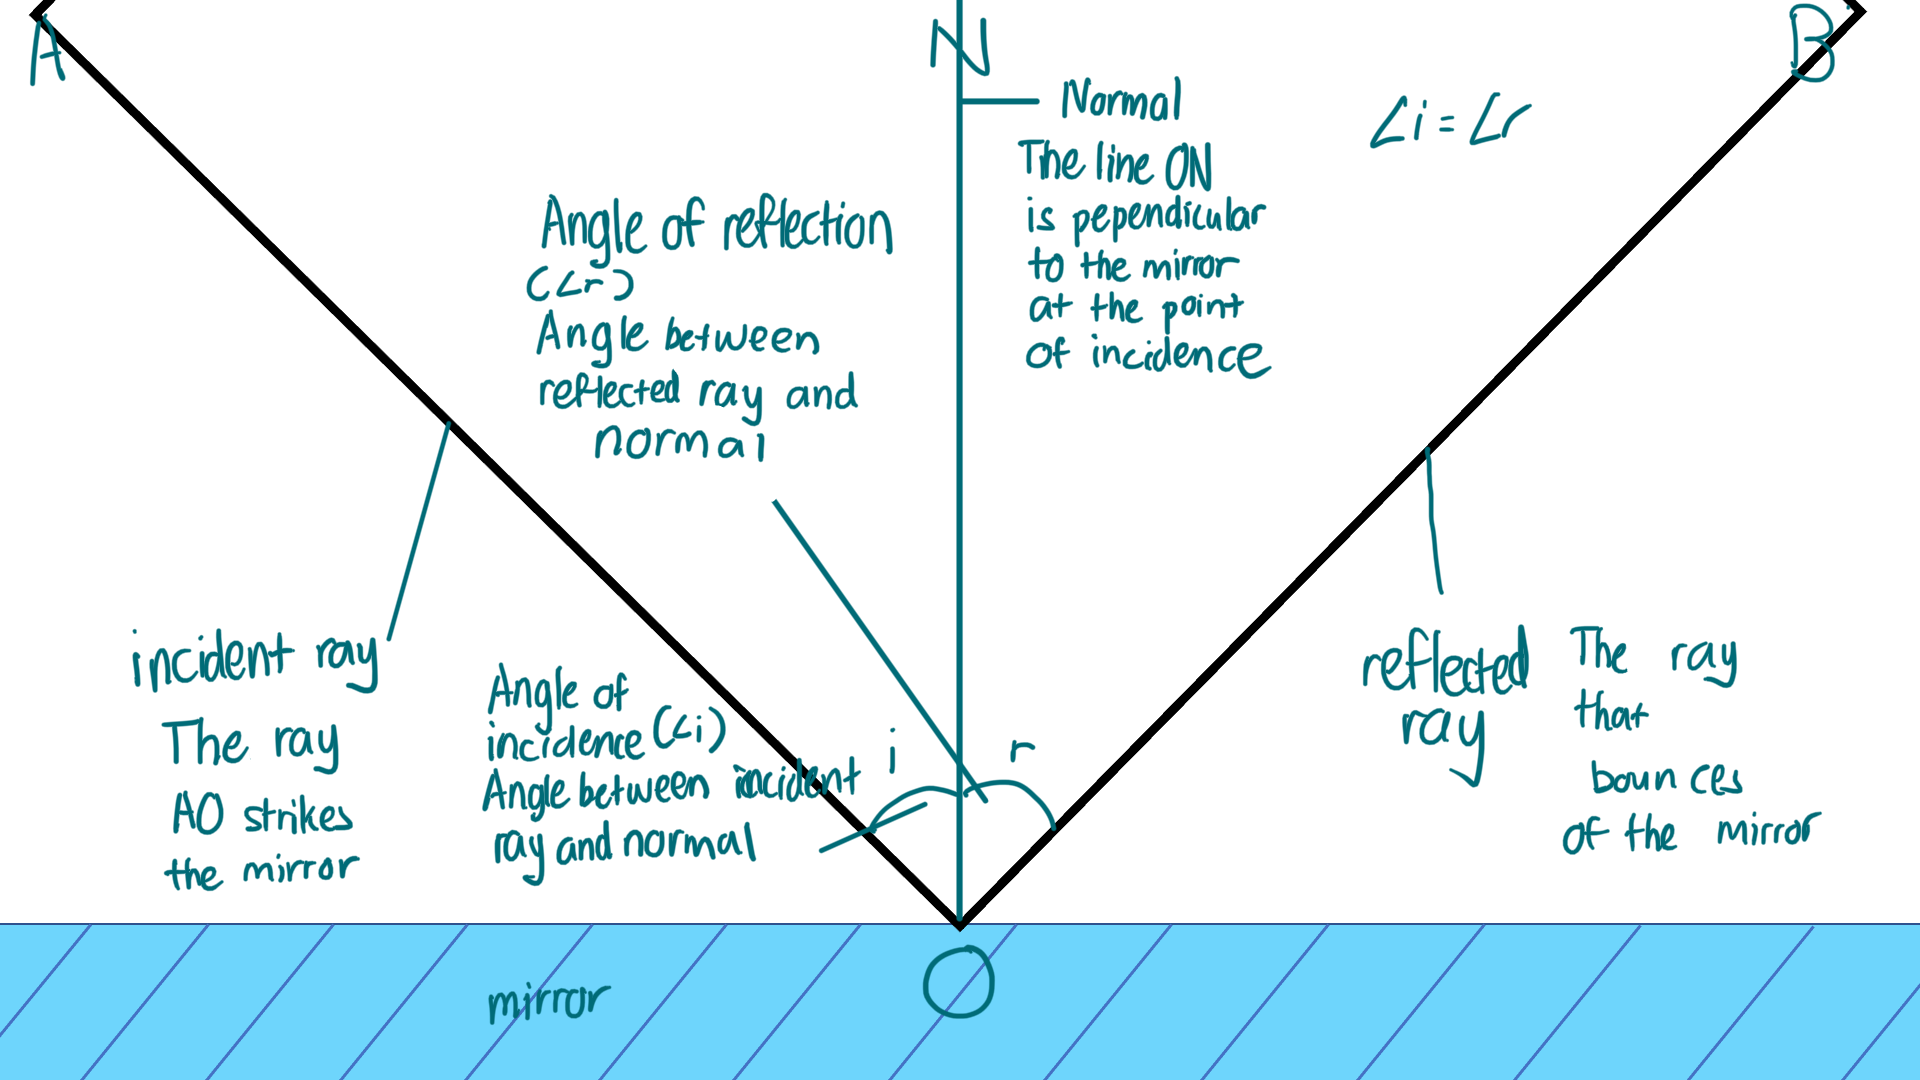 A
N
B
Normal
∠i = ∠r
The line ON
is pependicular
to the mirror
at the point
of incidence
Angle of reflection
(∠r)
Angle between
reflected ray and
normal
incident ray
The ray
AO strikes
the mirror
Angle of
incidence (∠i)
Angle between incident
ray and normal
i
r
reflected
ray
The ray
that
bounces
of the mirror
mirror
O